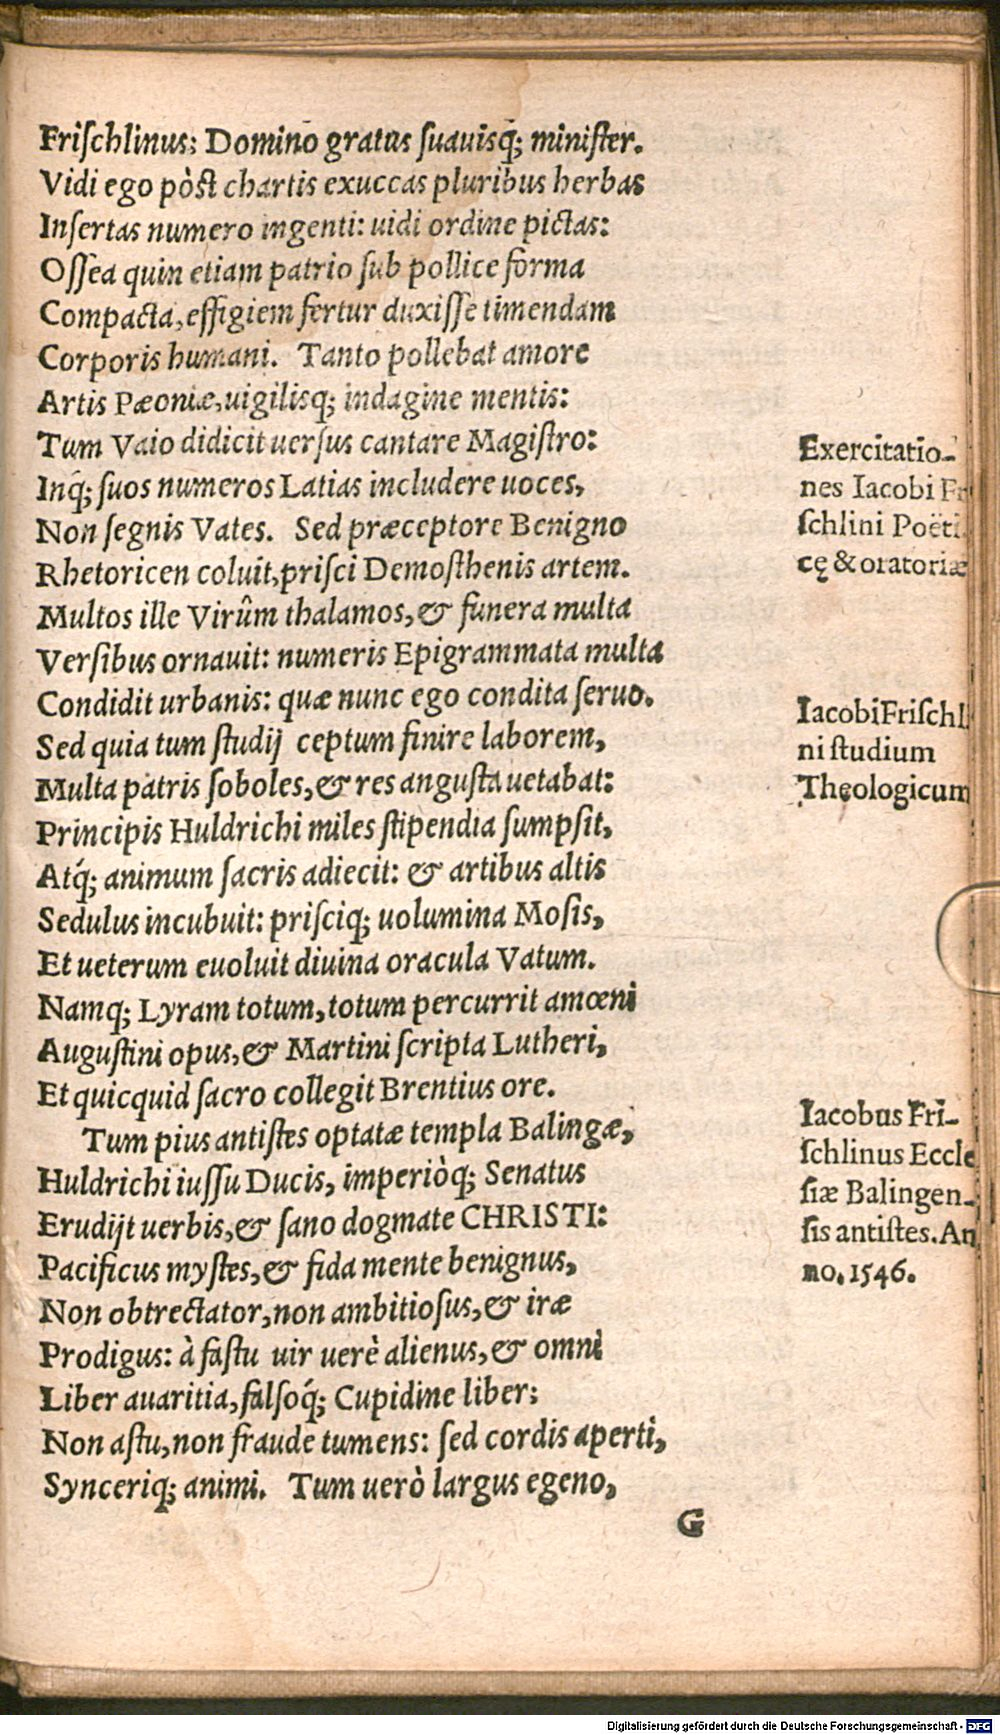 Friſchlinus: Domino gratus ſuauisq́; miniſter.
Vidi ego pòſt chartis exuccas pluribus herbas
Inſertas numero ingenti: uidi ordine pictas:
Oſſea quin etiam patrio ſub pollice forma
Compacta, effigiem fertur duxiſſe timendam
Corporis humani. Tanto pollebat amore
Artis Pæoniæ, uigilisq; indagine mentis:
Tum Vaio didicit uerſus cantare Magiſtro:
Inq́; ſuos numeros Latias includere uoces,
Non ſegnis Vates. Sed præceptore Benigno
Rhetoricen coluit, priſci Demoſthenis artem.
Multos ille Virûm thalamos, & funera multa
Verſibus ornauit: numeris Epigrammata multa
Condidit urbanis: quæ nunc ego condita ſeruo.
Sed quia tum ſtudij ceptum finire laborem,
Multa patris ſoboles, & res anguſta uetabat:
Principis Huldrichi miles ſtipendia ſumpſit,
Atq́; animum ſacris adiecit: & artibus altis
Sedulus incubuit: priſciq; uolumina Moſis,
Et ueterum euoluit diuina oracula Vatum.
Namq; Lyram totum, totum percurrit amœni
Auguſtini opus, & Martini ſcripta Lutheri,
Et quicquid ſacro collegit Brentius ore.
Tum pius antiſtes optatæ templa Balingæ,
Huldrichi iuſſu Ducis, imperiòq; Senatus
Erudijt uerbis, & ſano dogmate CHRISTI:
Pacificus myſtes, & fida mente benignus,
Non obtrectator, non ambitioſus, & iræ
Prodigus: à faſtu uir uerè alienus, & omni
Liber auaritia, falſoq́; Cupidine liber:
Non aſtu, non fraude tumens: ſed cordis aperti,
Synceriq; animi. Tum uerò largus egeno,
G
Exercitatio-
nes Iacobi Fri
ſchlini Poëti
cę & oratoriæ
Iacobi Friſchli
ni ſtudium
Theologicum
Iacobus Fri-
ſchlinus Eccle
ſiæ Balingen-
ſis antiſtes. An
no. 1546.
Digitalisierung gefördert durch die Deutsche Forschungsgemeinschaft - DFG